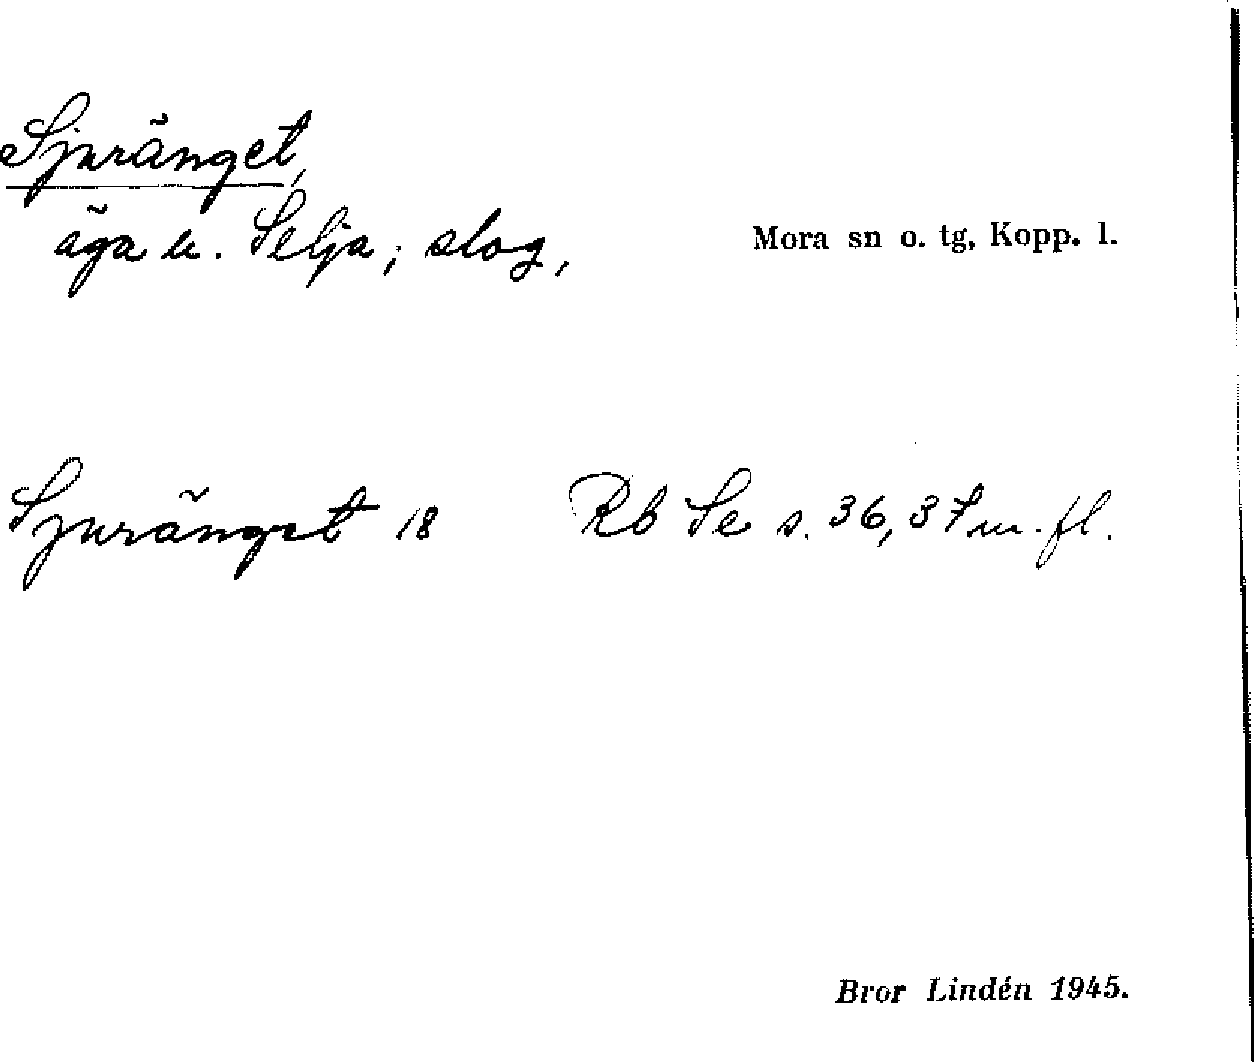 Sjuränget,
äga u. Selja; slog,
Mora sn o. tg, Kopp. l.
Sjuränget 18 Rb Se s. 36, 37 m. fl.
Bror Lindén 1945.